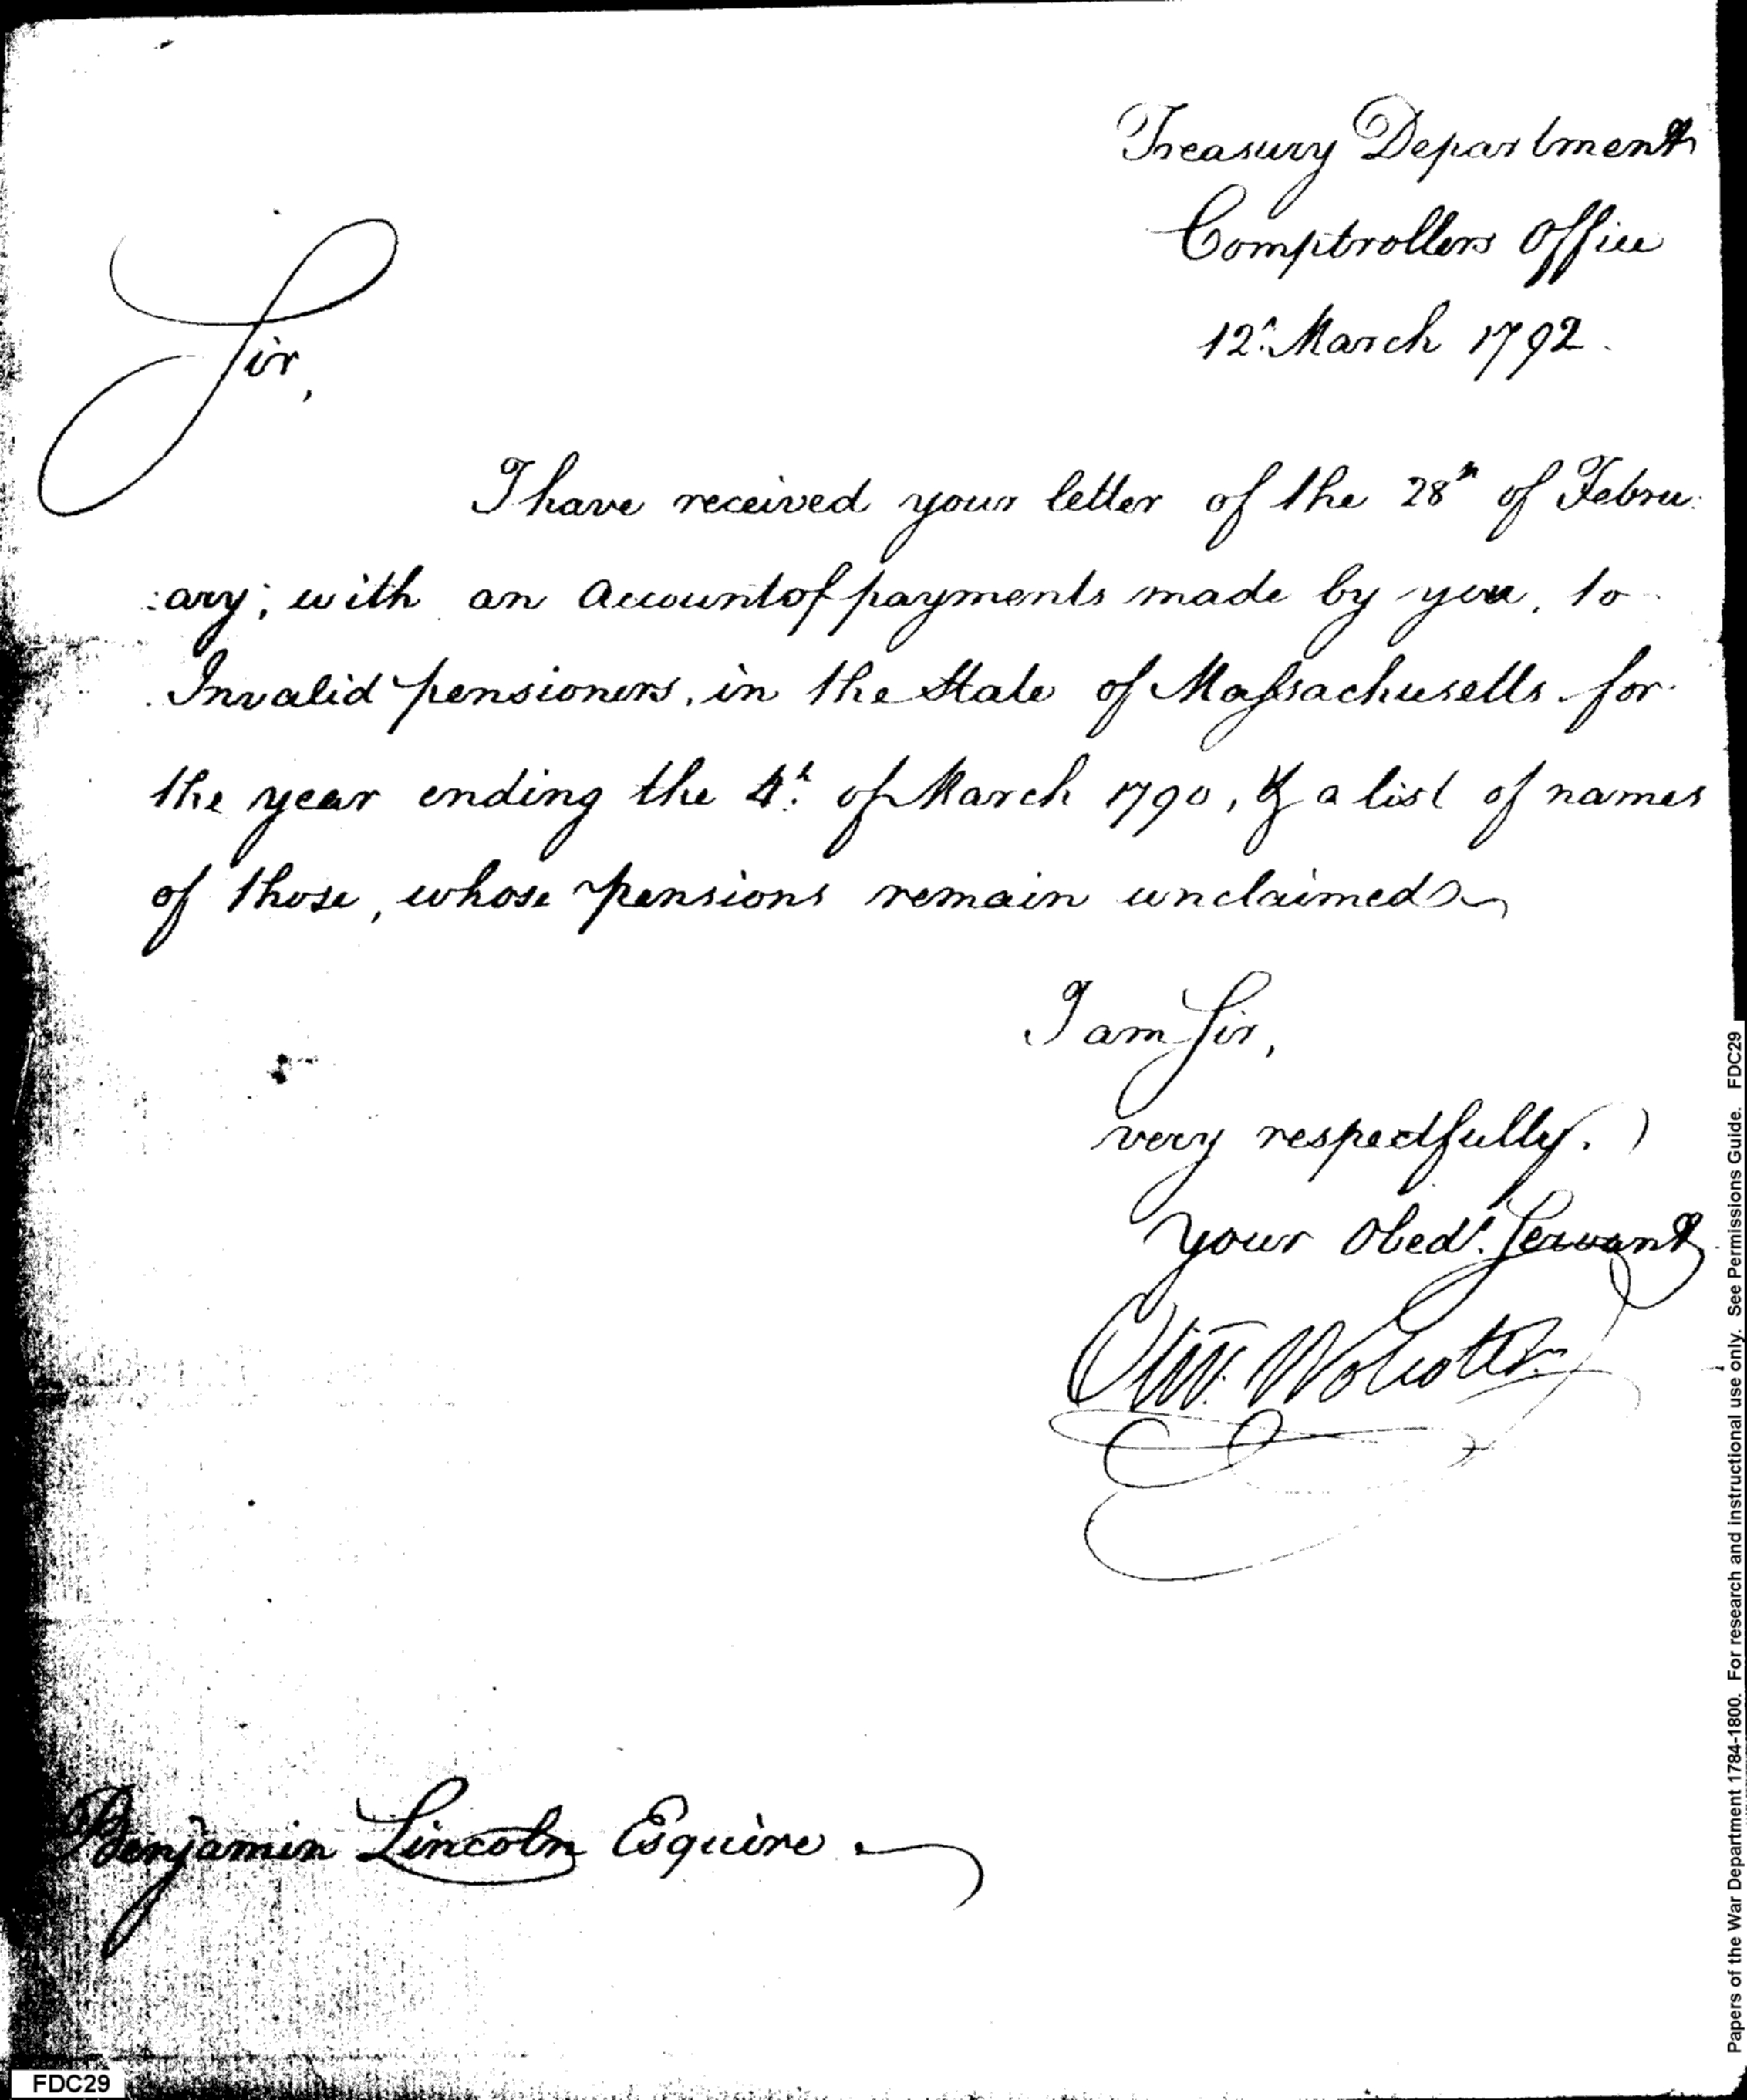 Treasury Department
Comptrollers Office
12th March 1792.
Sir,
I have received your letter of the 28th of Febru:
:ary; with an Account of payments made by you, to
Invalid pensioners, in the State of Massachusetts for
the year ending the 4th of March 1790, & a list of names
of those, whose pensions remain unclaimed
I am Sir,
very respectfully.
your Obedt. Servant
Oliv. Wolcott Jr.
Benjamin Lincoln Esquire
FDC29
Papers of the War Department 1784-1800. For research and instructional use only. See Permissions Guide. FDC29